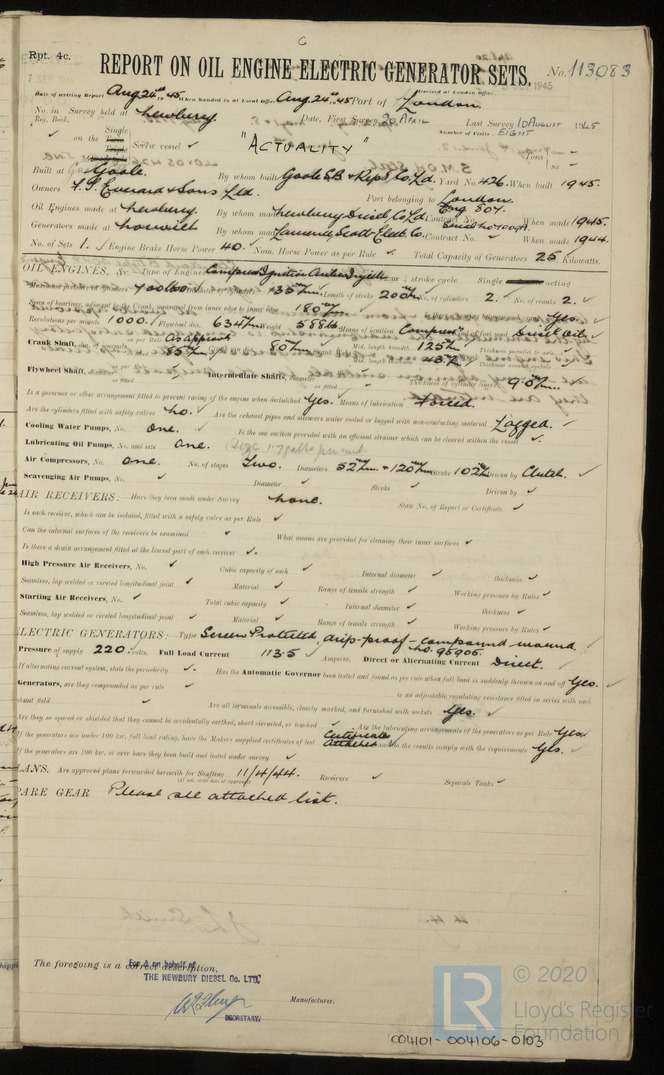 Rpt. 4c.
REPORT ON OIL ENGINE ELECTRIC GENERATOR SETS.
No. 113083
Received at London Office
Date of writing Report Aug 24th 1945 When handed in at Local Office Aug 24th 1945 Port of London
No. in Survey held at Newbury Date, First Survey 20 April Last Survey 10 August 1945
Reg. Book. Number of Visits EIGHT
Single
on the Screw vessel "ACTUALITY" Tons
Built at Goole By whom built Goole S.B. & Rep. Co. Ld. Yard No. 426 When built 1945.
Owners F. T. Everard & Sons Ltd. Port belonging to London
Oil Engines made at Newbury By whom made Newbury Diesel Co Ld Contract No. Eng. 804 When made 1945.
Generators made at Norwich By whom made Laurence Scott Elect Co. Contract No. When made 1944.
No. of Sets 1. Engine Brake Horse Power 40. Nom. Horse Power as per Rule Total Capacity of Generators 25 Kilowatts.
OIL ENGINES, &c. Type of Engine Compress Ignition stroke cycle Single acting
Length of stroke 200 No. of cylinders 2. No. of cranks 2.
Span of bearings, adjacent to the Crank, measured from inner edge to inner edge 180 Yes.
Revolutions per minute 1000. Flywheel dia. 634 Weight 558 Means of ignition Compress Kind of fuel used Diesel oil
Crank Shaft, dia. of journals as per Rule As approved 85 80 Mid. length breadth 125 Thickness parallel to axis
Flywheel Shaft, diameter Intermediate Shafts, diameter Thickness of cylinder liners 9.0
Is a governor or other arrangement fitted to prevent racing of the engine when declutched Yes. Means of lubrication Forced.
Are the cylinders fitted with safety valves No. Are the exhaust pipes and silencers water cooled or lagged with non-conducting material Lagged.
Cooling Water Pumps, No. One. Is the sea suction provided with an efficient strainer which can be cleared within the vessel
Lubricating Oil Pumps, No. and size One.
Air Compressors, No. One. No. of stages Two. Diameters 52 + 120 Stroke 102 Driven by Clutch.
Scavenging Air Pumps, No. Diameter Stroke Driven by
AIR RECEIVERS: Have they been made under Survey None. State No. of Report or Certificate
Is each receiver, which can be isolated, fitted with a safety valve as per Rule
Can the internal surfaces of the receivers be examined What means are provided for cleaning their inner surfaces
Is there a drain arrangement fitted at the lowest part of each receiver
High Pressure Air Receivers, No. Cubic capacity of each Internal diameter thickness
Seamless, lap welded or riveted longitudinal joint Material Range of tensile strength Working pressure by Rules
Starting Air Receivers, No. Total cubic capacity Internal diameter thickness
Seamless, lap welded or riveted longitudinal joint Material Range of tensile strength Working pressure by Rules
ELECTRIC GENERATORS: Type Screen Protected, drip-proof - compound wound.
No. 95905.
Pressure of supply 220. volts. Full Load Current 113.5 Amperes. Direct or Alternating Current Direct.
If alternating current system, state the periodicity Has the Automatic Governor been tested and found as per rule when full load is suddenly thrown on and off Yes.
Generators, are they compounded as per rule is an adjustable regulating resistance fitted in series with each
shunt field Are all terminals accessible, clearly marked, and furnished with sockets Yes.
Are they so spaced or shielded that they cannot be accidentally earthed, short circuited, or touched Are the lubricating arrangements of the generators as per Rule Yes.
If the generators are under 100 kw. full load rating, have the Makers supplied certificates of test Certificate Attached and do the results comply with the requirements Yes.
If the generators are 100 kw. or over have they been built and tested under survey
PLANS. Are approved plans forwarded herewith for Shafting 11/4/44. Receivers Separate Tanks
(If not, state date of approval)
SPARE GEAR Please see attached list.
The foregoing is a correct description,
For & on behalf of
THE NEWBURY DIESEL Co. LTD,
Manufacturer.
SECRETARY.
LR
© 2020
Lloyd's Register
Foundation
004101-004106-0103